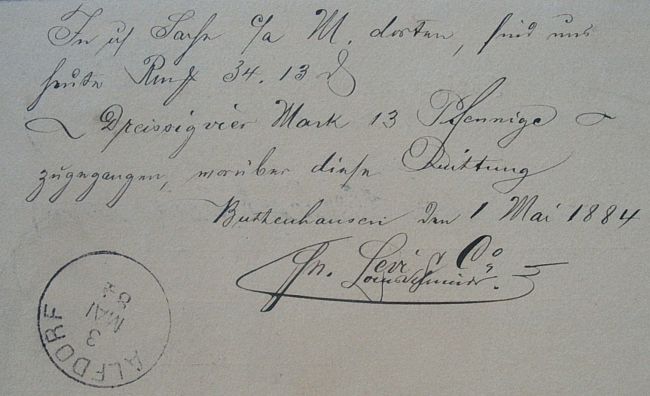 In uf Sache c/a M. dorten, sind uns
heute Rmk 34.13 ₰
Dreissigvier Mark 13 Pfennige
zugegangen, worüber diese Quittung
Buttenhausen den 1 Mai 1884
Levi & Co
ALFDORF
3
MAI
84